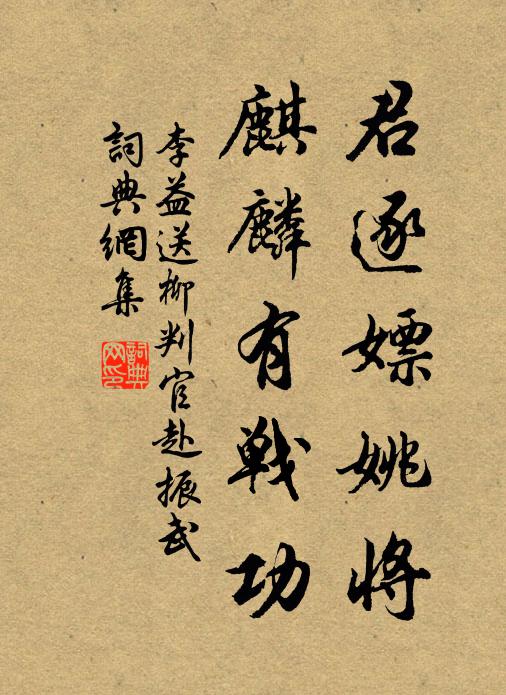 君逐嫖姚將
麒麟有戰功
李益送柳判官赴振武
詞典網集
詞典網印